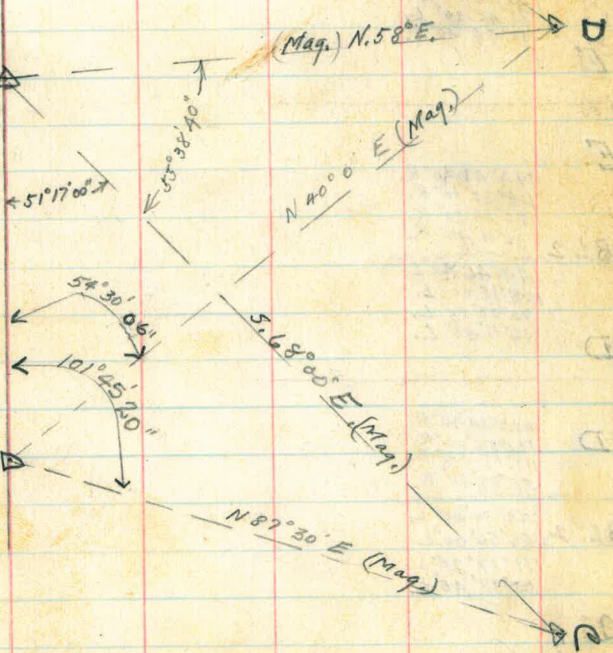 D
(Mag.) N.58°E.
55°38'40"
51°17'00"
N 40°0' E (Mag.)
54°30'06"
101°45'20"
S.68°00' E.(Mag.)
N 87°30' E (Mag.)
C